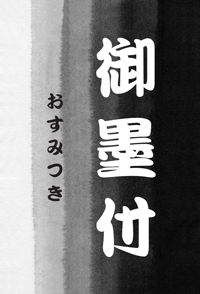 御墨付
おすみつき